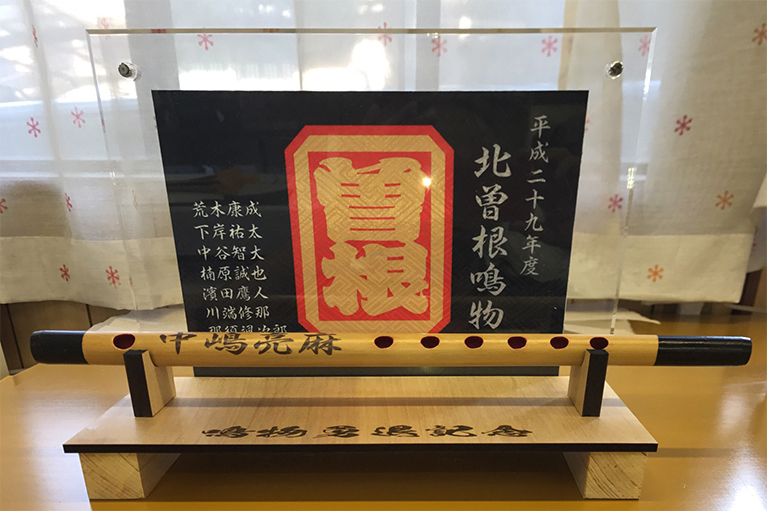 平成二十九年度
北曽根鳴物
曽根
荒木康成
下岸祐太
中谷智大
楠原誠也
濱田鷹人
川端修那
中嶋亮麻
鳴物勇退記念